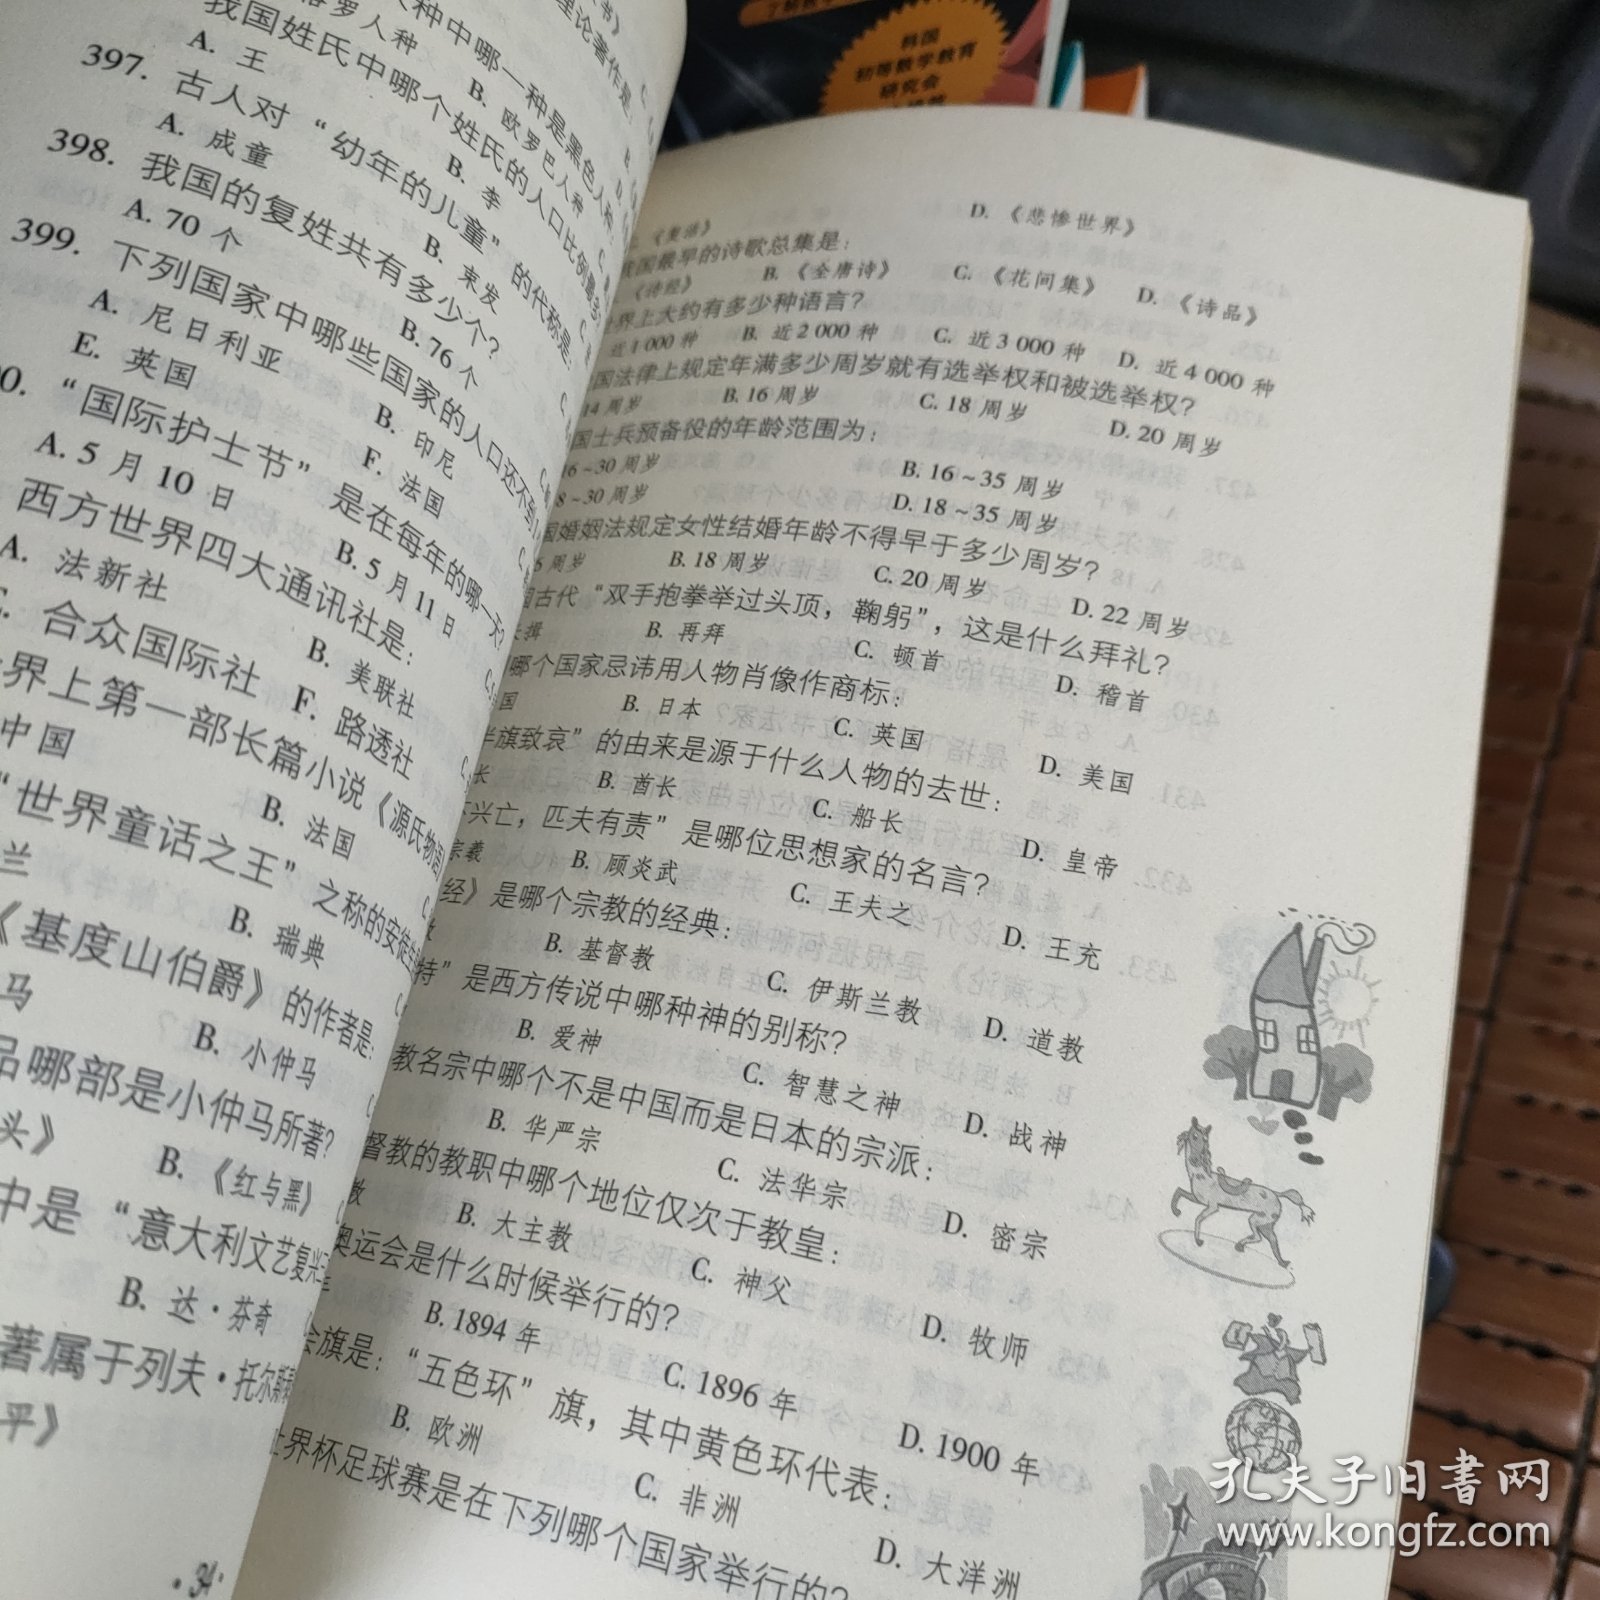 韩国
初等数学教育
研究会
人种中哪一种是黑色人种
B. 欧罗巴人种
我国姓氏中哪个姓氏的人口比例最多
A. 王
B. 李
397. 古人对“幼年的儿童”的代称是:
A. 成童
B. 束发
398. 我国的复姓共有多少个?
A. 70 个
B. 76 个
399. 下列国家中哪些国家的人口还不到
A. 尼日利亚
B. 印尼
E. 英国
F. 法国
“国际护士节”是在每年的哪一天?
A. 5 月 10 日
B. 5 月 11 日
西方世界四大通讯社是:
A. 法新社
B. 美联社
合众国际社
F. 路透社
界上第一部长篇小说《源氏物语
中国
B. 法国
“世界童话之王”之称的安徒生
兰
B. 瑞典
《基度山伯爵》的作者是:
马
B. 小仲马
品哪部是小仲马所著?
头》
B. 《红与黑》
中是“意大利文艺复兴三
B. 达·芬奇
著属于列夫·托尔斯
平》
· 34 ·
D. 《悲惨世界》
我国最早的诗歌总集是:
《诗经》
B. 《全唐诗》
C. 《花间集》
D. 《诗品》
世界上大约有多少种语言?
近 1 000 种
B. 近 2 000 种
C. 近 3 000 种
D. 近 4 000 种
国法律上规定年满多少周岁就有选举权和被选举权?
14 周岁
B. 16 周岁
C. 18 周岁
D. 20 周岁
国士兵预备役的年龄范围为:
6~30 周岁
B. 16~35 周岁
8~30 周岁
D. 18~35 周岁
国婚姻法规定女性结婚年龄不得早于多少周岁?
6 周岁
B. 18 周岁
C. 20 周岁
D. 22 周岁
国古代“双手抱拳举过头顶，鞠躬”，这是什么拜礼?
长揖
B. 再拜
C. 顿首
D. 稽首
哪个国家忌讳用人物肖像作商标:
国
B. 日本
C. 英国
D. 美国
半旗致哀”的由来是源于什么人物的去世:
长
B. 酋长
C. 船长
D. 皇帝
兴亡，匹夫有责”是哪位思想家的名言?
宗羲
B. 顾炎武
C. 王夫之
D. 王充
经》是哪个宗教的经典:
B. 基督教
C. 伊斯兰教
D. 道教
特”是西方传说中哪种神的别称?
B. 爱神
C. 智慧之神
D. 战神
教名宗中哪个不是中国而是日本的宗派:
B. 华严宗
C. 法华宗
D. 密宗
督教的教职中哪个地位仅次于教皇:
教
B. 大主教
C. 神父
D. 牧师
奥运会是什么时候举行的?
B. 1894 年
C. 1896 年
D. 1900 年
会旗是:“五色环”旗，其中黄色环代表:
B. 欧洲
C. 非洲
D. 大洋洲
世界杯足球赛是在下列哪个国家举行的?
孔夫子旧书网
www.kongfz.com